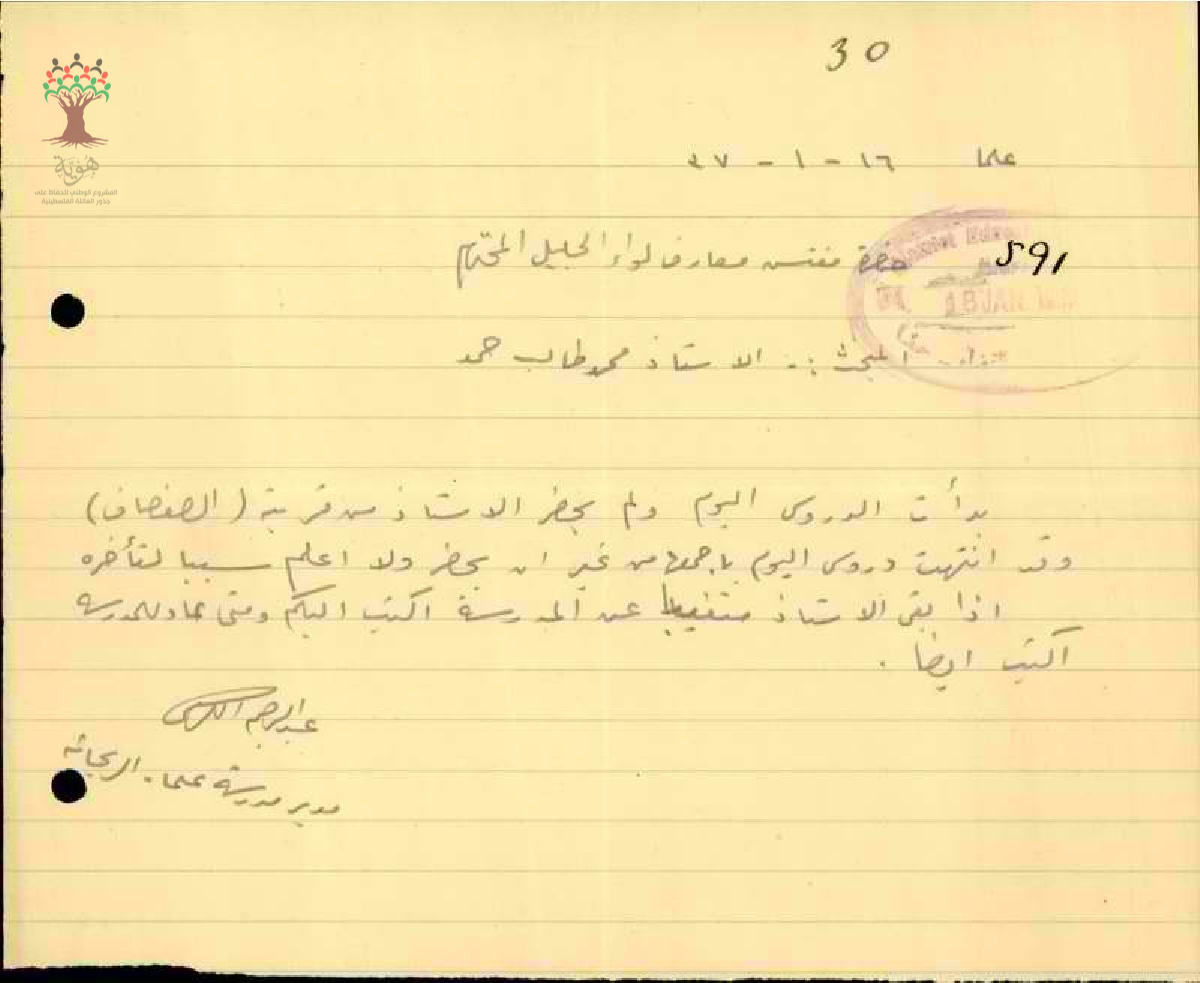 30
هوية
المشروع الوطني للحفاظ على
جذور العائلة الفلسطينية
علما ١٦ - ١ - ٣٧
591
حضرة مفتش معارف لواء الجليل المحترم
18 JAN
المبحث :. الاستاذ محمد طالب حمد
بدأت الدروس اليوم ولم يحضر الاستاذ من قرية (الصفصاف)
وقد انتهت دروس اليوم باجمعها من غير ان يحضر ولا اعلم سببا لتأخره
اذا بقي الاستاذ متغيبا عن المدرسة اكتب اليكم ومتى عاد للمدرسة
اكتب ايضا .
عبد الرحيم
مدير مدرسة علما . الريحانيه